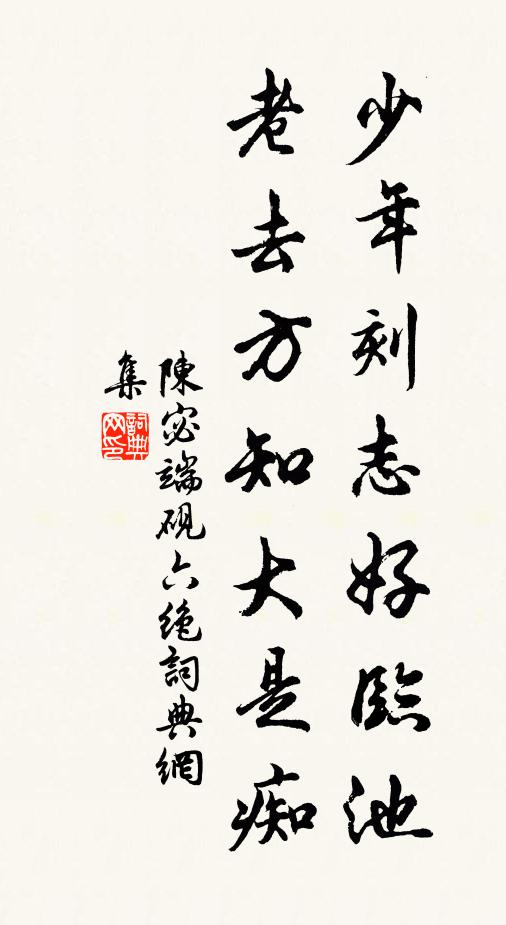 少年刻志好臨池
老去方知大是痴
陳宓端硯六絶詞典網
集
詞典
网印